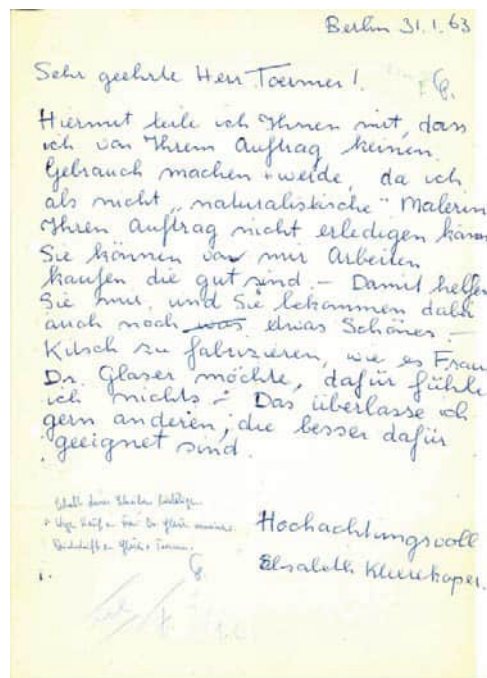 Berlin 31.1.63
Sehr geehrte Herr Toermer!
Hiermit teile ich Ihnen mit, dass
ich von Ihrem Auftrag keinen
Gebrauch machen werde, da ich
als nicht „naturalistische" Malerin
Ihren Auftrag nicht erledigen kann
Sie können von mir Arbeiten
kaufen die gut sind. – Damit helfen
Sie mir, und Sie bekommen dabei
auch noch was etwas Schönes. –
Kitsch zu fabrizieren, wie es Frau
Dr. Glaser möchte, dafür fühle
ich nichts. – Das überlasse ich
gern anderen, die besser dafür
geeignet sind.
Hochachtungsvoll
Elisabeth